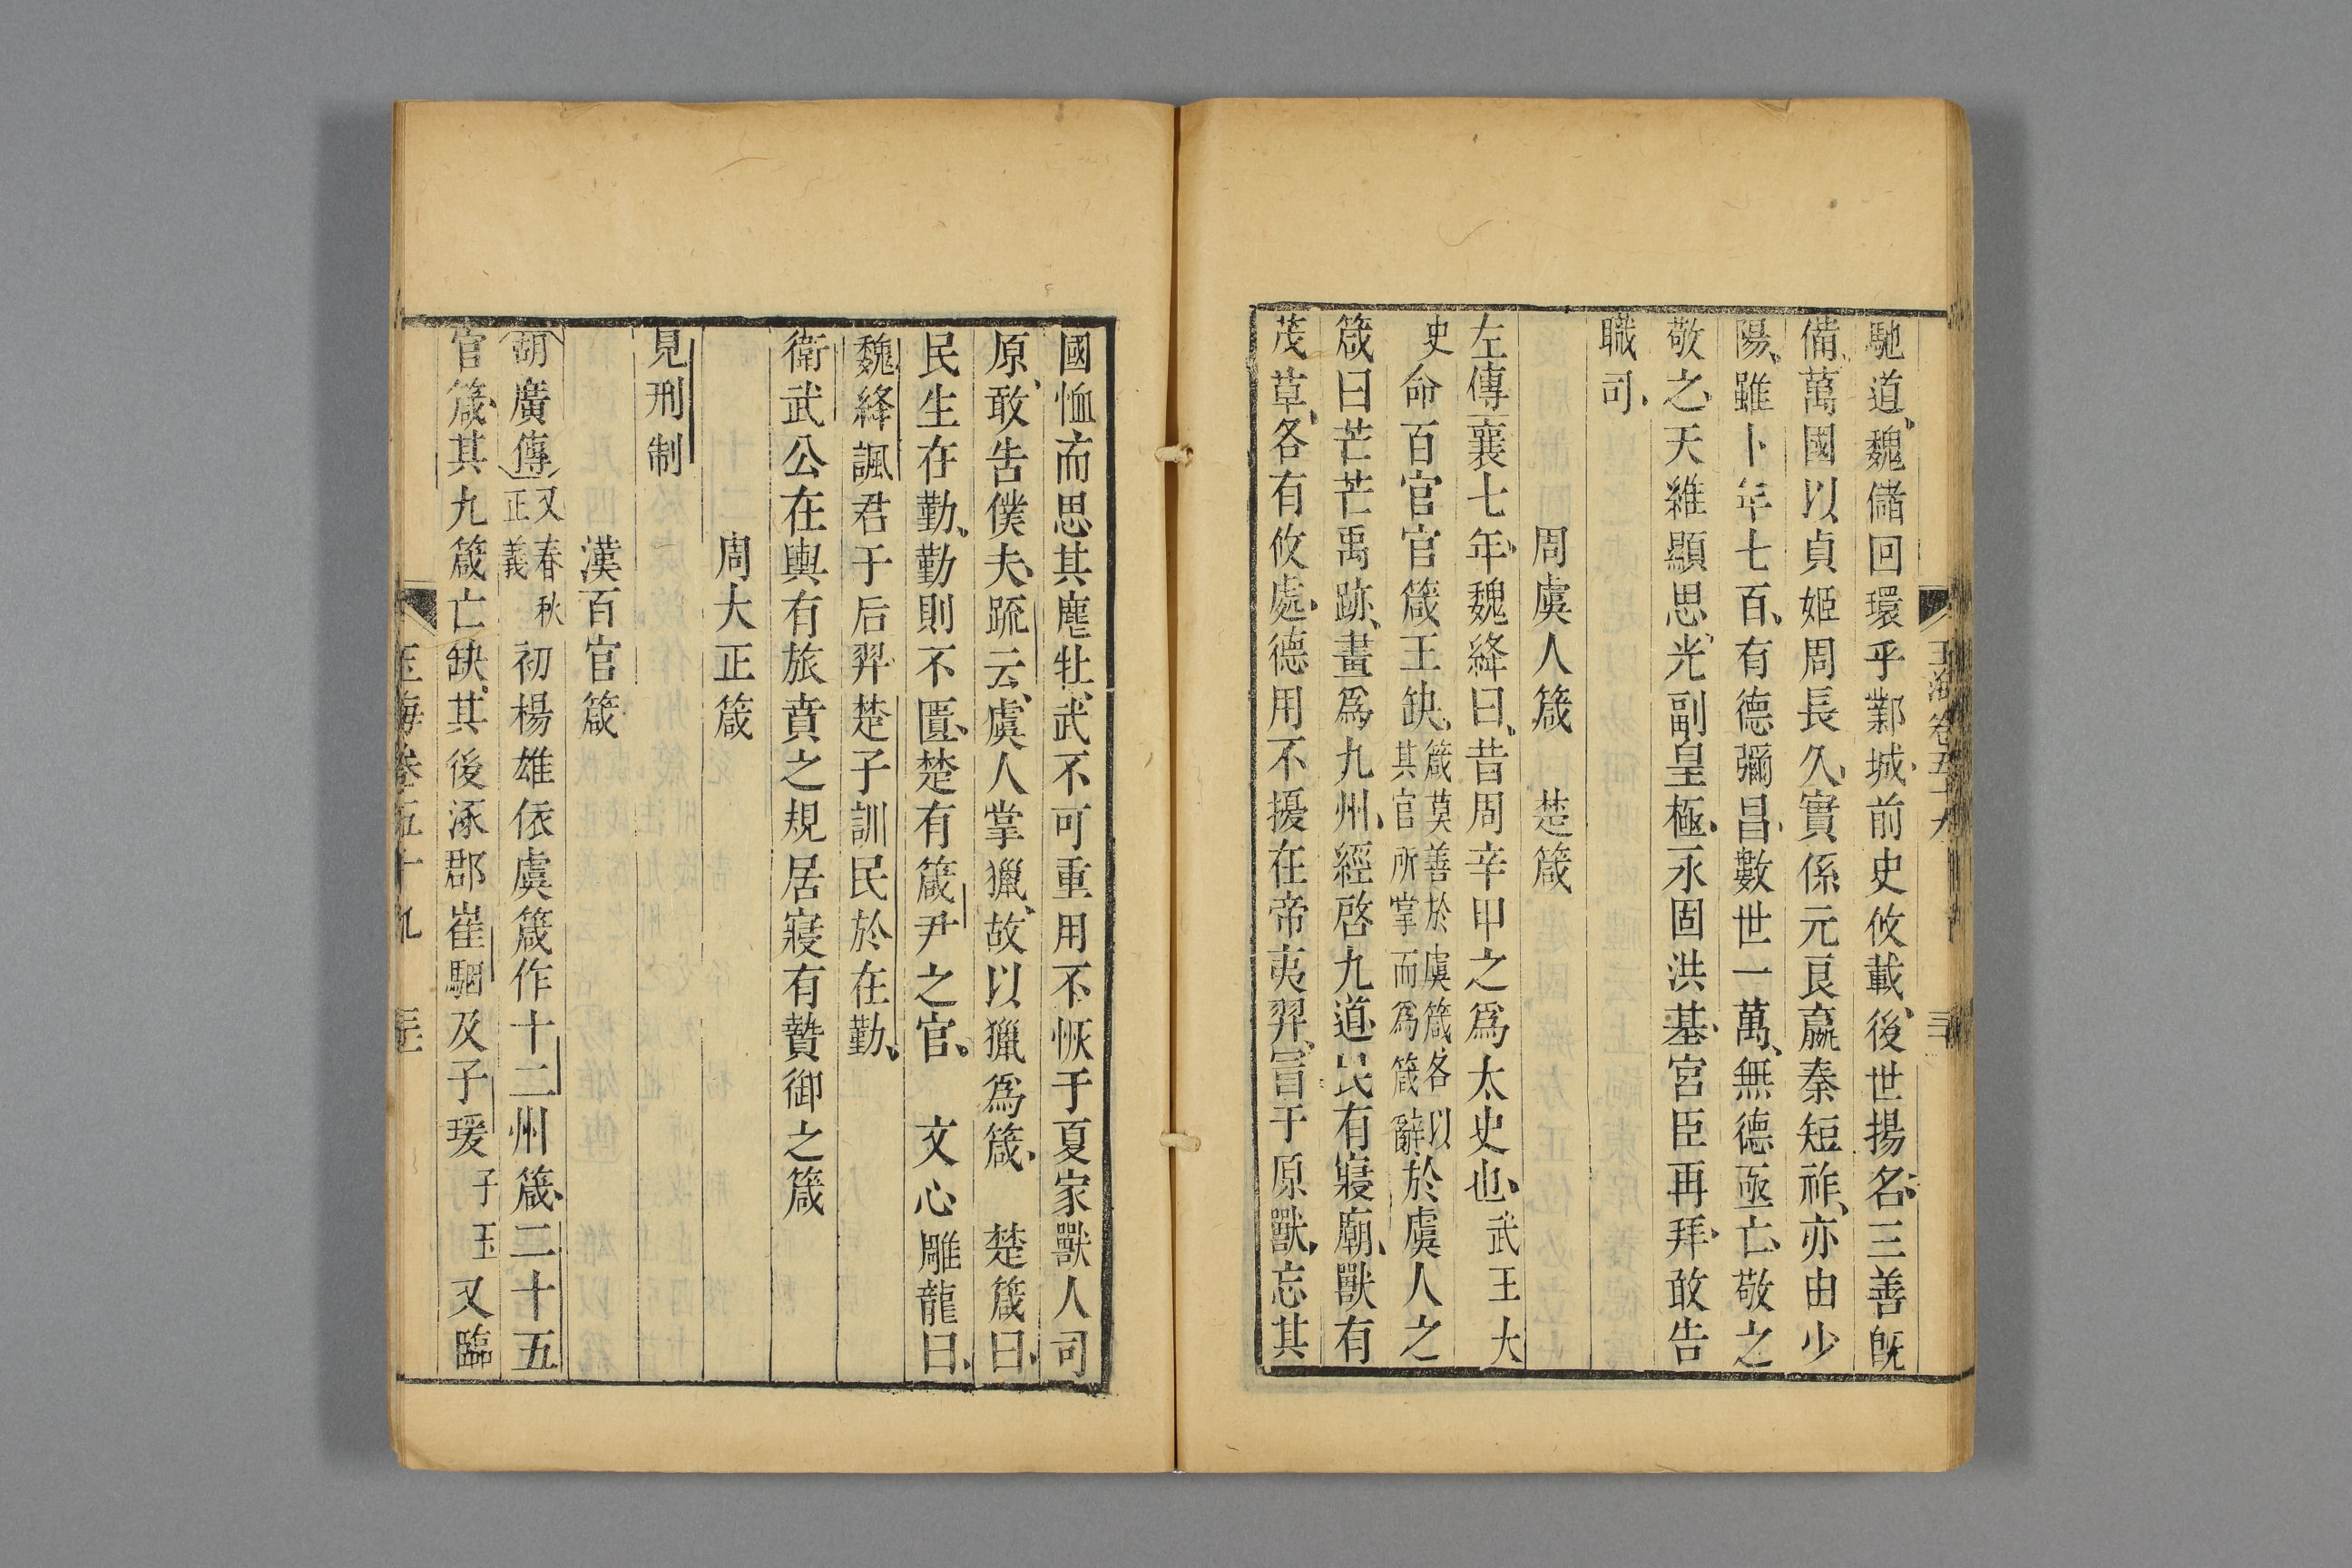 馳道魏儲回環乎鄴城前史攸載後世揚名三善旣
備萬國以貞姬周長久實係元良嬴秦短祚亦由少
陽雖卜年七百有德彌昌數世一萬無德亟亡敬之
敬之天維顯思光副皇極永固洪基宮臣再拜敢告
職司
周虞人箴 楚箴
左傳襄七年魏絳曰昔周辛甲之爲太史也武王大
史命百官官箴王缺箴莫善於虞箴各以其官所掌而爲箴辭於虞人之
箴曰芒芒禹跡畫爲九州經啓九道民有寢廟獸有
茂草各有攸處德用不擾在帝夷羿冒于原獸忘其
國恤而思其麀牡武不可重用不恢于夏家獸人司
原敢告僕夫疏云虞人掌獵故以獵爲箴 楚箴曰
民生在勤勤則不匱楚有箴尹之官 文心雕龍曰
魏絳諷君于后羿楚子訓民於在勤
衛武公在輿有旅賁之規居寢有贄御之箴
周大正箴
見刑制
漢百官箴
胡廣傳又春秋正義初楊雄依虞箴作十二州箴二十五
官箴其九箴亡缺其後涿郡崔駰及子瑗子玉又臨
玉海卷五十九